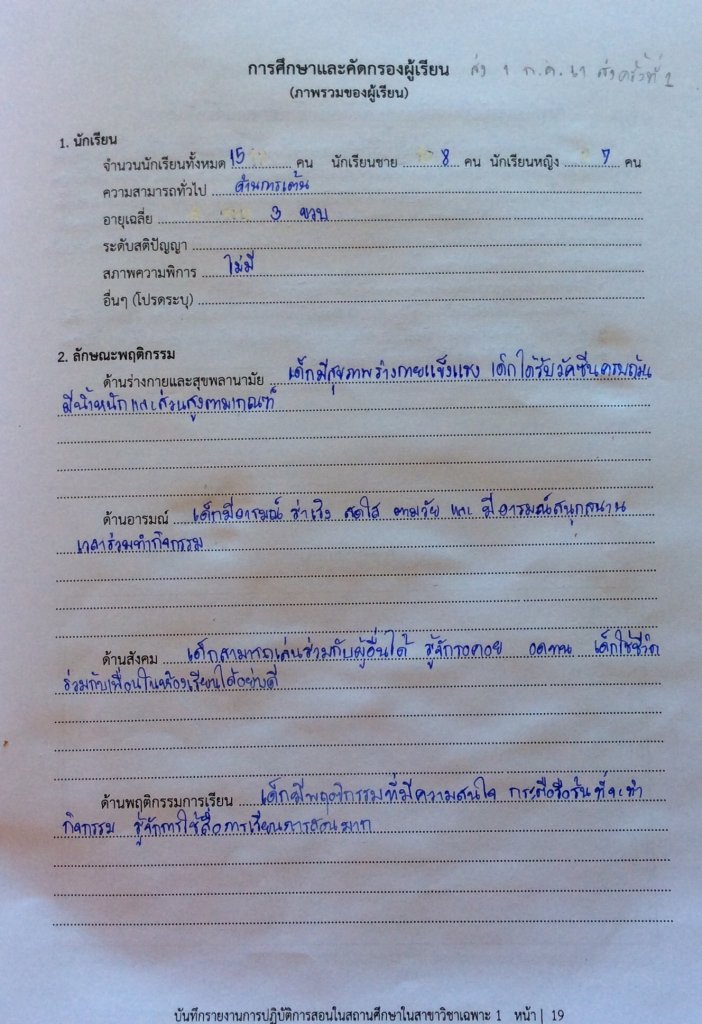 การศึกษาและคัดกรองผู้เรียน ส่ง 1 ก.ค. 61 ส่งครั้งที่ 1
(ภาพรวมของผู้เรียน)
1. นักเรียน
จำนวนนักเรียนทั้งหมด 15 คน นักเรียนชาย 8 คน นักเรียนหญิง 7 คน
ความสามารถทั่วไป ด้านการเต้น
อายุเฉลี่ย 3 ขวบ
ระดับสติปัญญา
สภาพความพิการ ไม่มี
อื่นๆ (โปรดระบุ)
2. ลักษณะพฤติกรรม
ด้านร่างกายและสุขพลานามัย เด็กมีสุขภาพร่างกายแข็งแรง เด็กได้รับวัคซีนครบถ้วน
มีน้ำหนักและส่วนสูงตามเกณฑ์
ด้านอารมณ์ เด็กมีอารมณ์ ร่าเริง สดใส ตามวัย และ มีอารมณ์สนุกสนาน
เวลาร่วมทำกิจกรรม
ด้านสังคม เด็กสามารถเล่นร่วมกับผู้อื่นได้ รู้จักรอคอย อดทน เด็กใช้ชีวิต
ร่วมกับเพื่อนในห้องเรียนได้อย่างดี
ด้านพฤติกรรมการเรียน เด็กมีพฤติกรรมที่มีความสนใจ กระตือรือร้นที่จะทำ
กิจกรรม รู้จักการใช้สื่อการเรียนการสอนมาก
บันทึกรายงานการปฏิบัติการสอนในสถานศึกษาในสาขาวิชาเฉพาะ 1 หน้า | 19